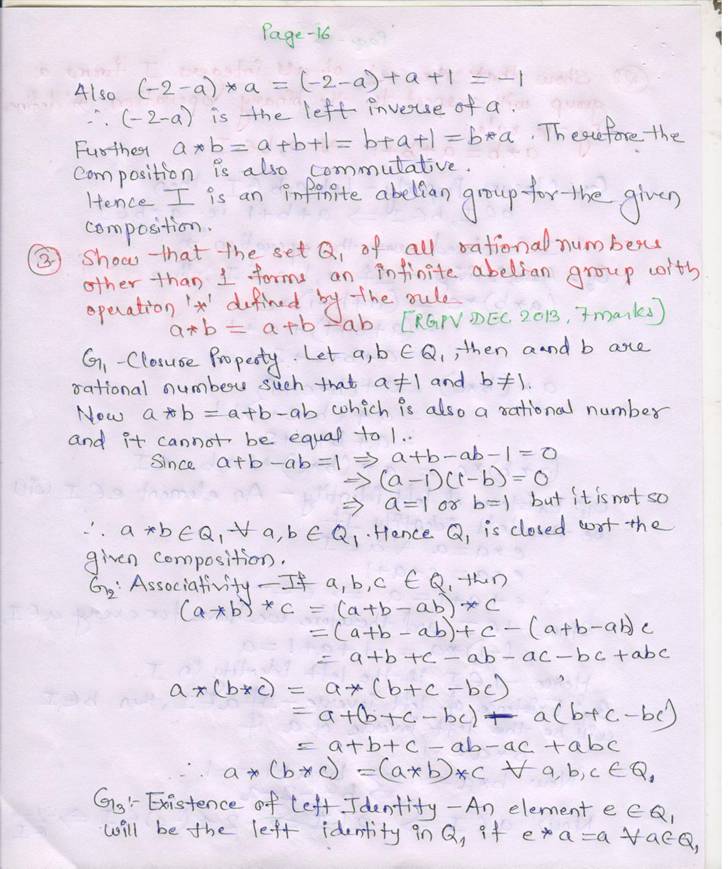 Page-16
Also (-2-a) * a = (-2-a)+a+1 = -1
∴ (-2-a) is the left inverse of a.
Further a*b = a+b+1= b+a+1= b*a. Therefore the
Composition is also commutative.
Hence I is an infinite abelian group for the given
composition.
③ Show that the set Q₁ of all rational numbers
other than 1 forms an infinite abelian group with
operation '*' defined by the rule
a*b = a+b-ab [RGPV DEC 2013, 7 marks]
G₁ -Closure Property. Let a,b ∈ Q₁, then a and b are
rational numbers such that a≠1 and b≠1.
Now a*b = a+b-ab which is also a rational number
and it cannot be equal to 1..
Since a+b-ab=1 ⇒ a+b-ab-1=0
⇒ (a-1)(1-b)=0
⇒ a=1 or b=1 but it is not so
∴ a*b∈Q₁ ∀ a,b ∈ Q₁. Hence Q₁ is closed wrt the
given composition.
G₂: Associativity - If a,b,c ∈ Q₁ then
(a*b)*c = (a+b-ab)*c
= (a+b-ab)+c-(a+b-ab)c
= a+b+c-ab-ac-bc+abc
a*(b*c) = a*(b+c-bc)
= a+(b+c-bc) - a(b+c-bc)
= a+b+c-ab-ac+abc
∴ a*(b*c) =(a*b)*c ∀ a,b,c∈Q₁
G₃:- Existence of left Identity - An element e ∈ Q₁
will be the left identity in Q₁ if e*a=a ∀a∈Q₁